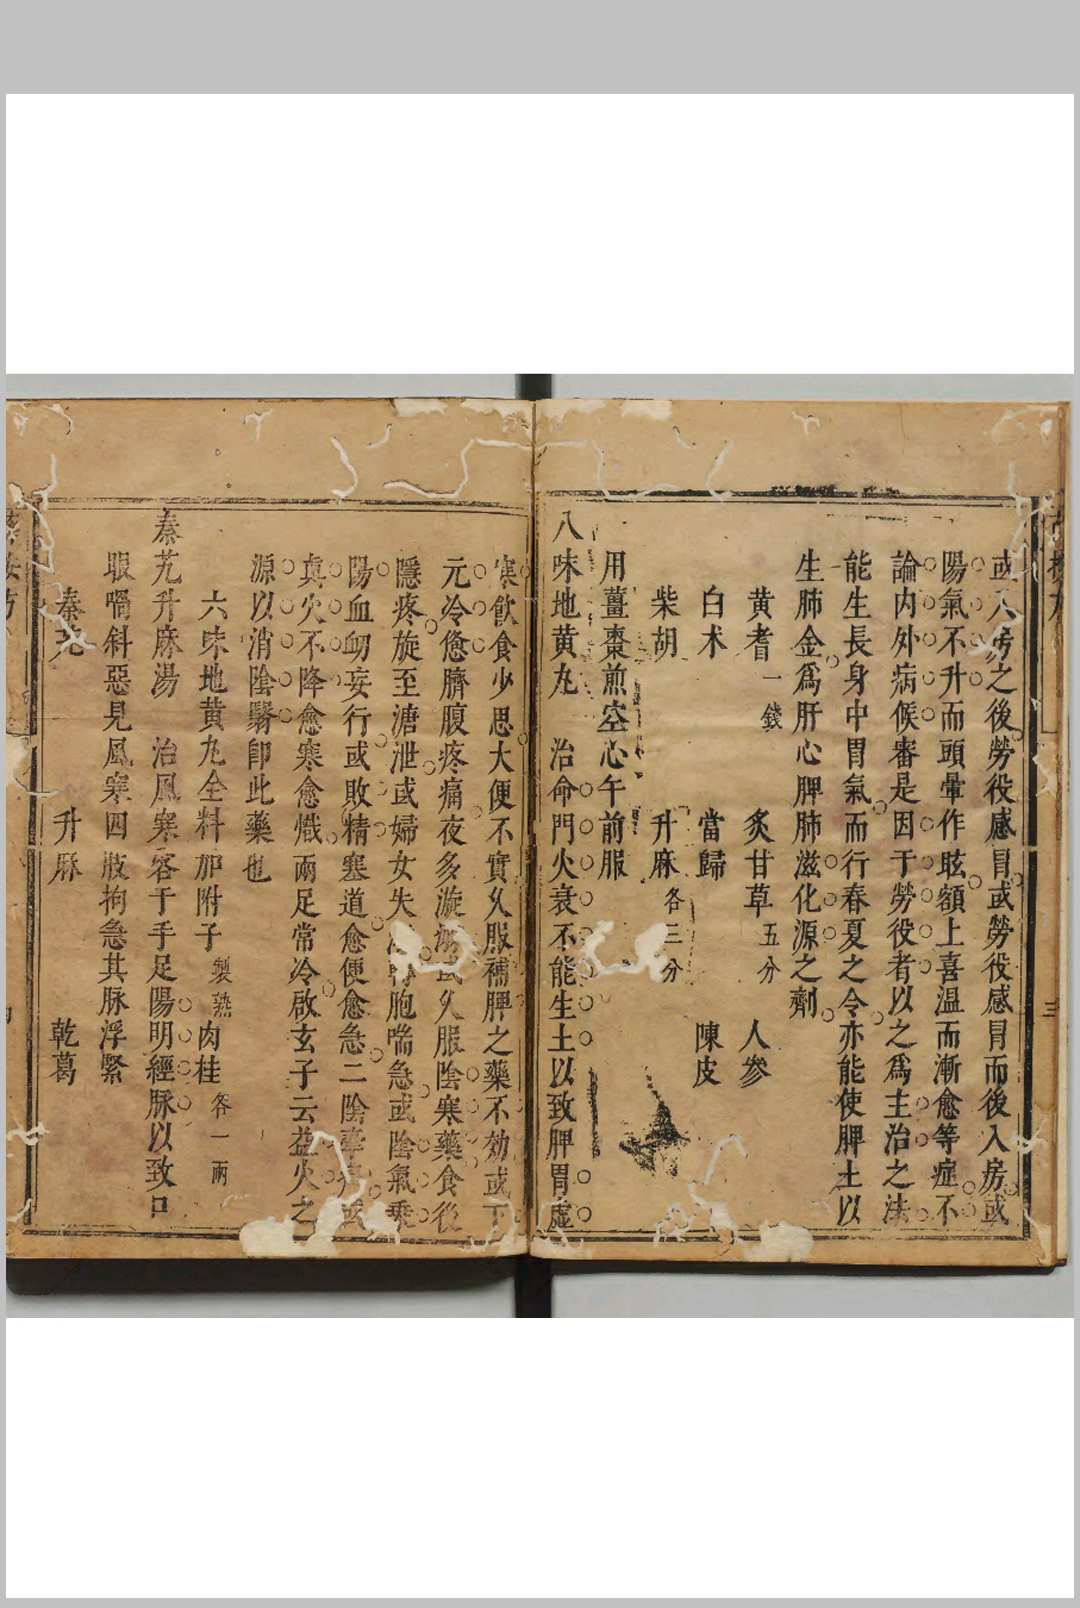 或入房之後勞役感冒或勞役感冒而後入房或
陽氣不升而頭暈作眩額上喜溫而漸愈等症不
論内外病候審是因于勞役者以之爲主治之法
能生長身中胃氣而行春夏之令亦能使脾土以
生肺金爲肝心脾肺滋化源之劑
黄耆一錢 炙甘草五分 人參
白术 當歸 陳皮
柴胡 升麻各三分
用薑棗煎空心午前服
八味地黄丸 治命門火衰不能生土以致脾胃虛
寒飲食少思大便不實久服補脾之藥不効或下
元冷憊臍腹疼痛夜多漩溺或久服陰寒藥食後
隱疼旋至溏泄或婦女失 轉胞喘急或陰氣乘
陽血衂妄行或敗精塞道愈便愈急二陰牽痛或
真火不降愈寒愈熾兩足常冷啟玄子云益火之
源以消陰翳卽此藥也
六味地黄丸全料加附子製熟肉桂各一兩
秦艽升麻湯 治風寒客于手足陽明經脈以致口
眼喎斜惡見風寒四肢拘急其脉浮緊
秦艽 升麻 乾葛